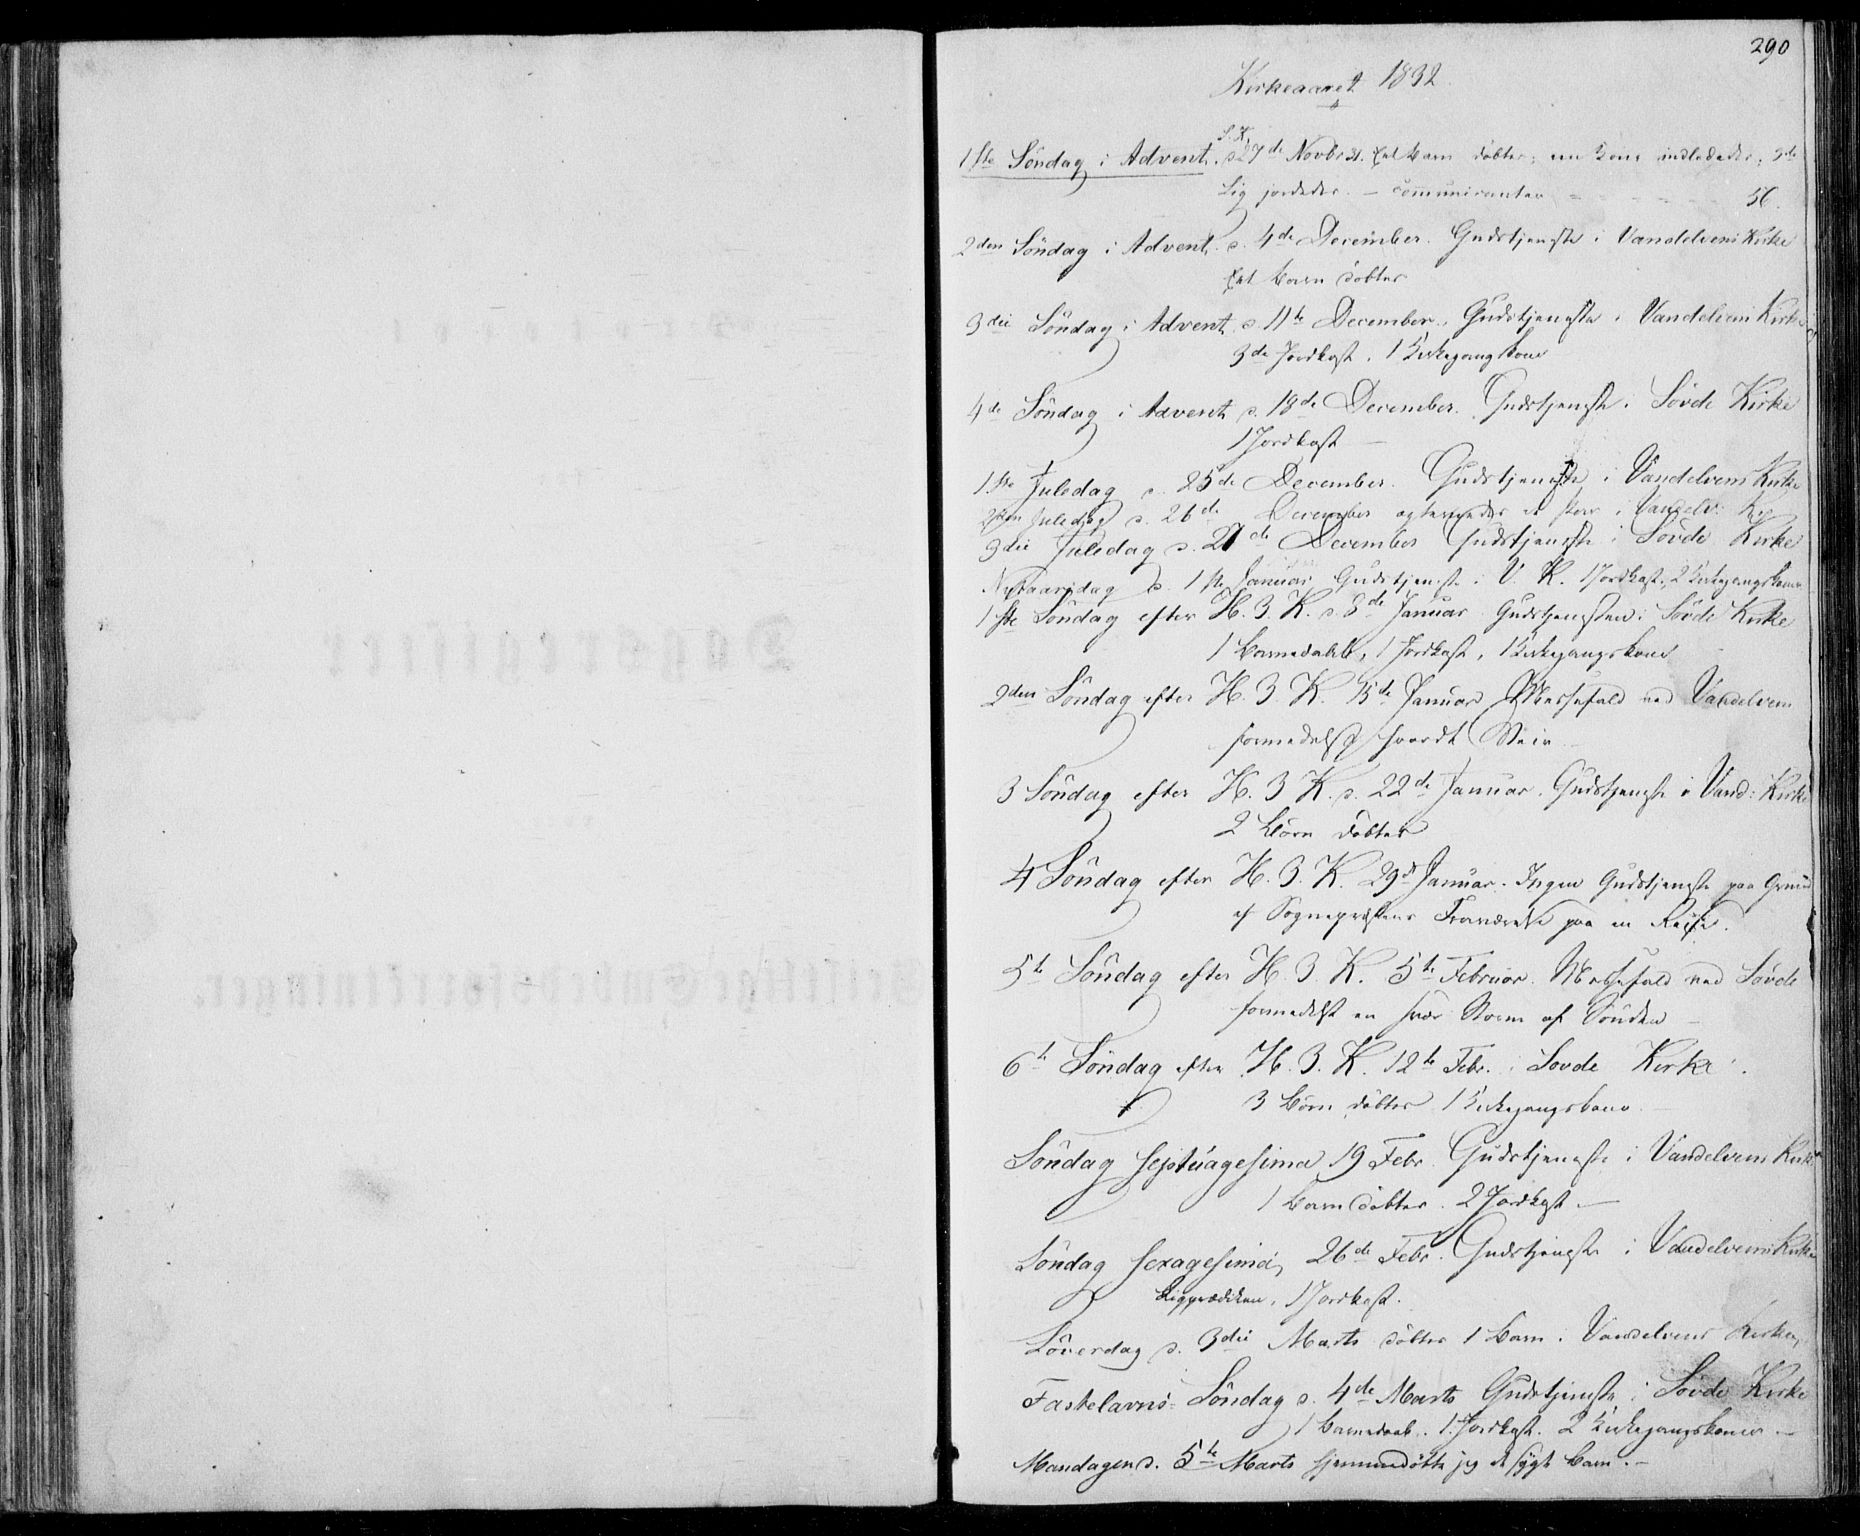 290
Kirkeaaret 1832.
S. K.
1ste Söndag i Advent. d. 27de Novbr 31. Eet Barn döbtes; een Kone indledede; 3de
Lig jordedes. – Communicanter – – – – – 56.
2den Söndag i Advent. d. 4de December. Gudstjeneste i Vandelvens Kirke
Eet Barn döbtes
3die Söndag i Advent d. 11te December. Gudstjeneste i Vandelvens Kirke
3de Jordkast. 1 Kirkegangskone
4de Söndag i Advent d. 18de December. Gudstjeneste i Sövde Kirke
1 Jordkast –
1ste Juledag d. 25de December. Gudstjeneste i Vandelvens Kirke
2den Juledag d. 26de December i Vandelv:
3die Juledag d. 27de December Gudstjeneste i Sövde Kirke
Nytaarsdag d. 1ste Januar Gudstjeneste i V. K. 1 Jordkast, 2 Kirkegangskoner
1ste Söndag efter H. 3. K. d. 8de Januar. Gudstjenesten i Sövde Kirke
1 Barnedaab, 1 Jordkast, 1 Kirkegangskone
2den Söndag efter H. 3. K. 15de Januar Messefald ved Vandelven
formedelst haardt Veir
3 Söndag efter H. 3 K. d. 22de Januar. Gudstjeneste i Vand: Kirke
2 Börn döbtes
4 Söndag efter H. 3. K. 29de Januar. Ingen Gudstjeneste paa Grund
af Sognepræstens Fraværelse paa en Reise.
5te Söndag efter H. 3. K. 5te Februar. Messefald ved Sövde
formedelst en svær Storm af Sönden –
6te Söndag efter H. 3. K. 12te Febr. i Sövde Kirke.
3 Börn döbtes 1 Kirkegangskone.
Söndag Septuagesima 19 Febr. Gudstjeneste i Vandelvens Kirke
1 Barn döbtes. 2 Jordkast –
Söndag Sexagesima, 26de Febr. Gudstjeneste i Vandelvens Kirke
Ligprædiken, 1 Jordkast.
Löverdag d. 3die Marts döbtes 1 Barn i Vandelvens Kirke,
Fastelavns-Söndag d. 4de Marts Gudstjeneste i Sövde Kirke
1 Barnedaab. 1 Jordkast. 2 Kirkegangskoner –
Mandagen d. 5te Marts hjemmedöbte jeg et sygt Barn. –